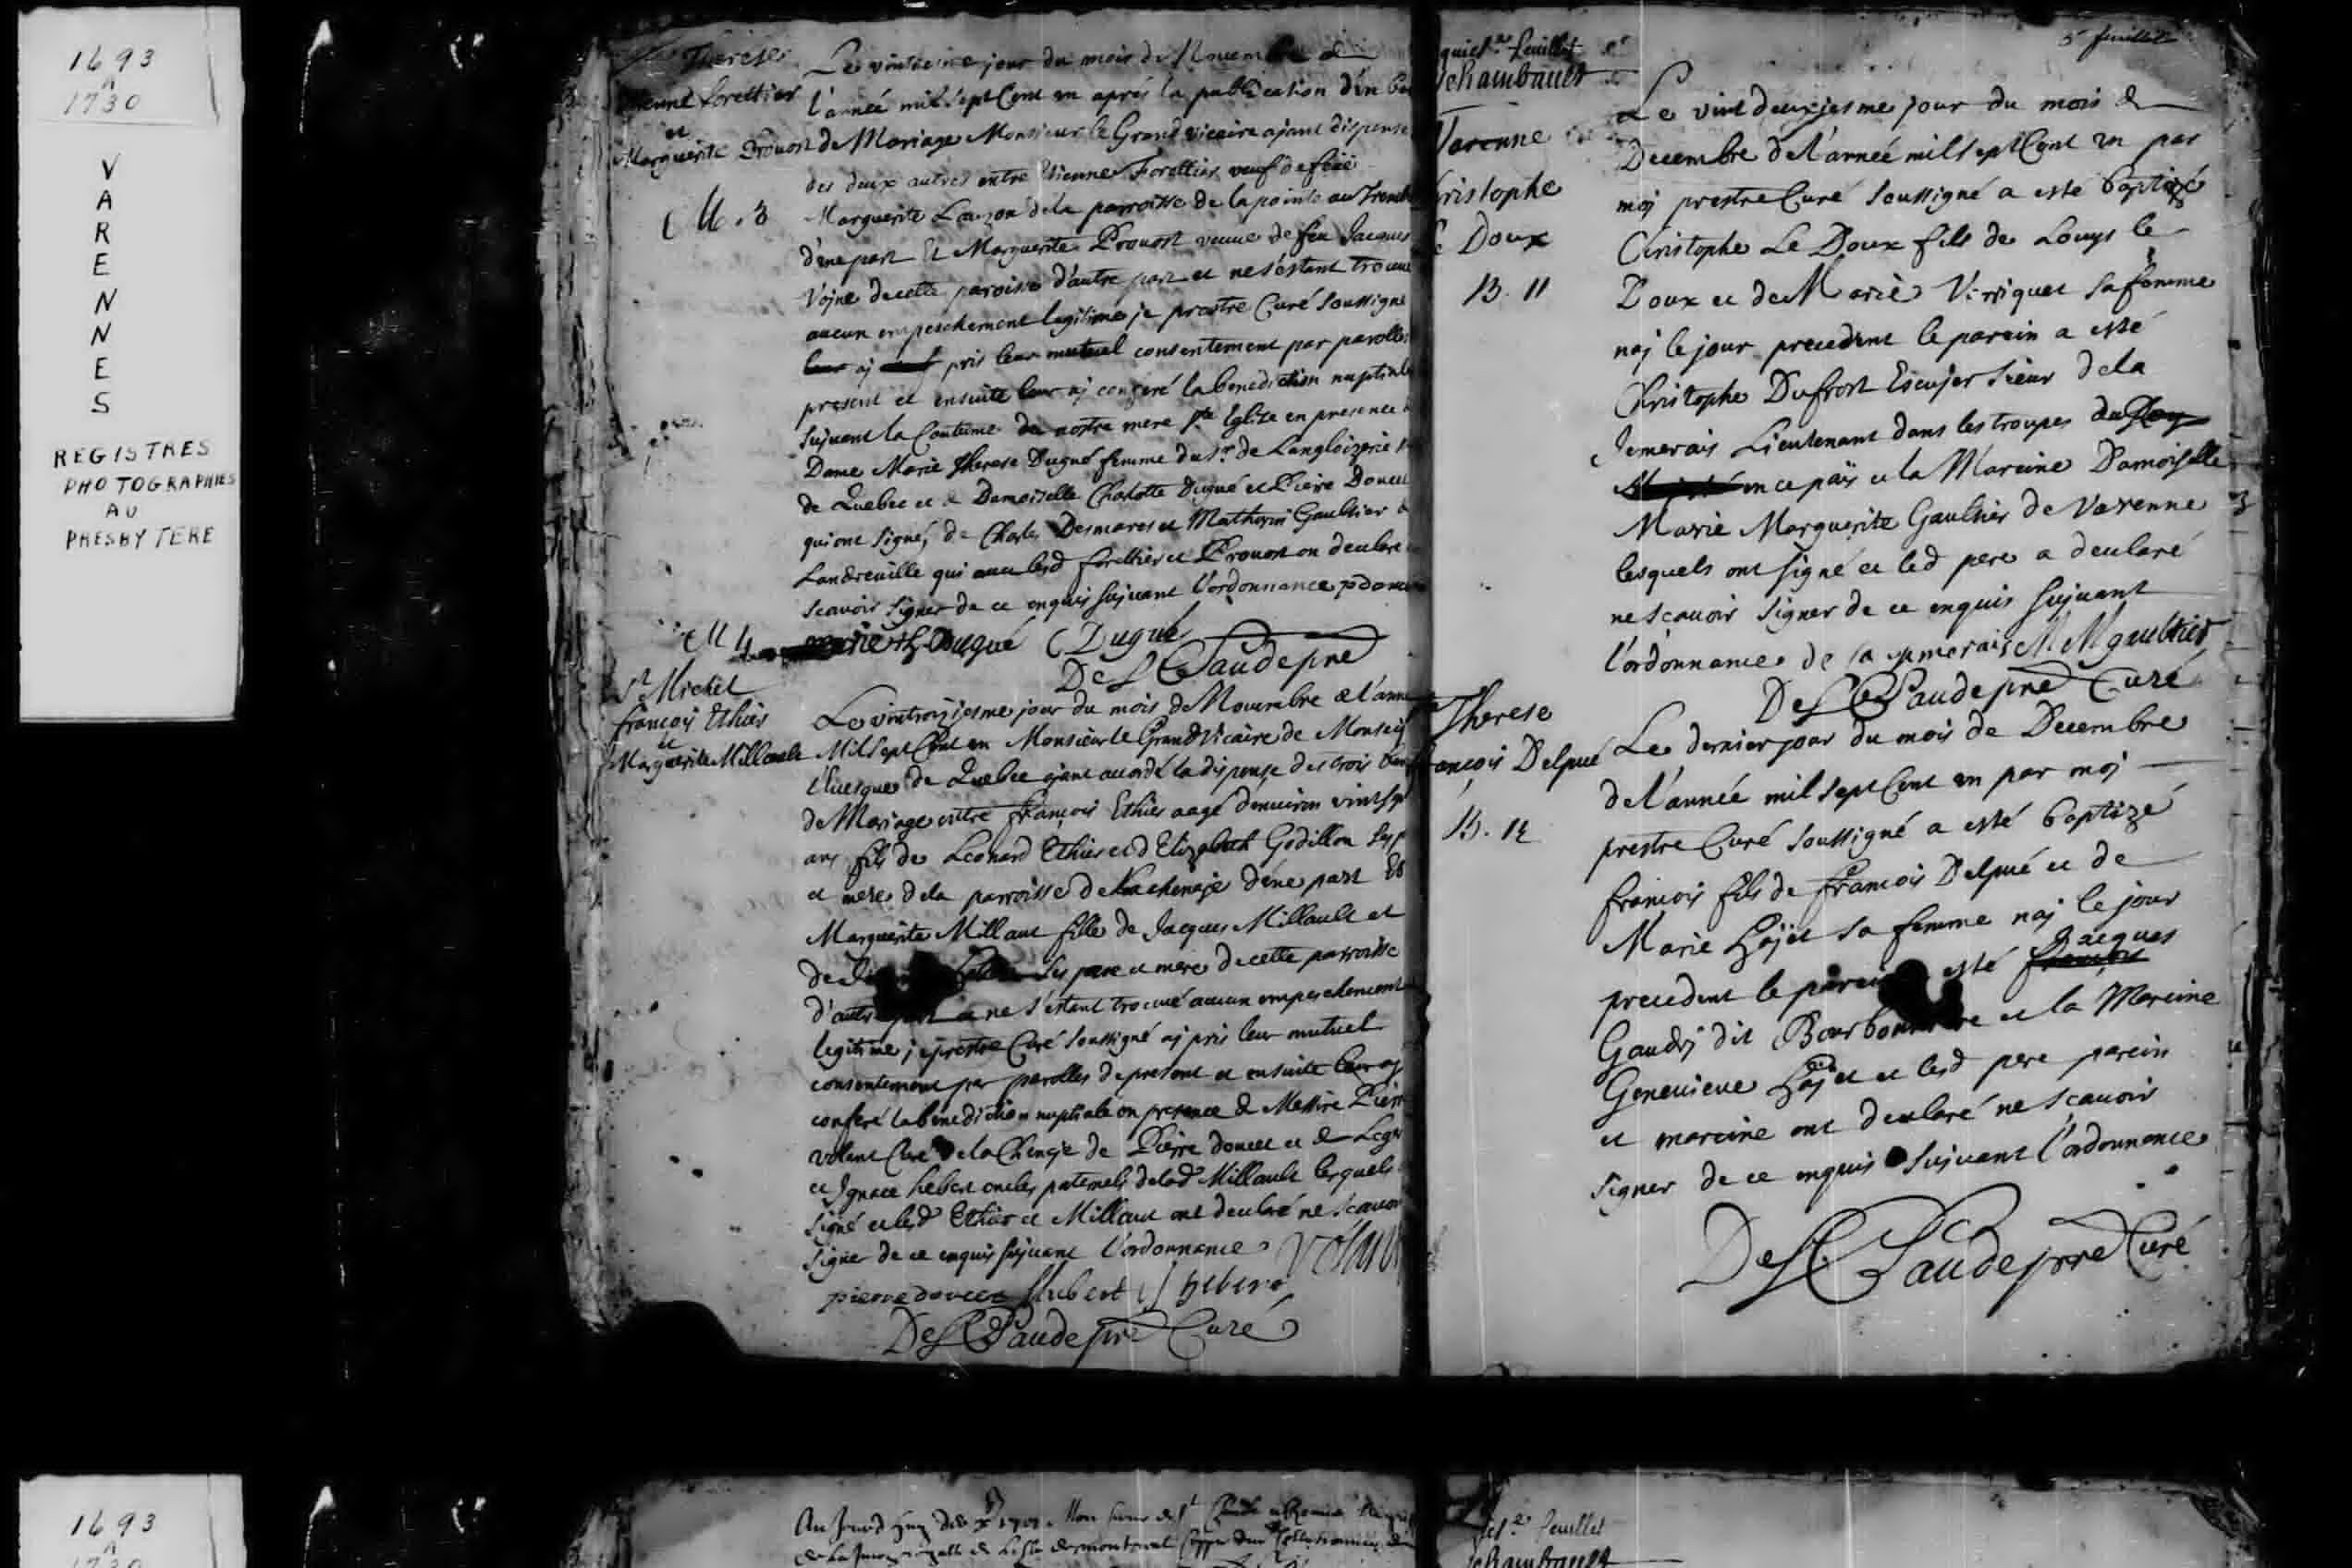 1693
A
1730
VARENNES
REGISTRES
PHOTOGRAPHIES
AU
PRESBYTERE
Therese
Forettier
et
Marguerite Prouost
M. 3
Le jour du mois de Nouembre de
l'année mil sept Cent un aprés la publication d'un
de Mariage Monsieur le Grand vicaire ajant dispensé
des deux autres entre Etienne Forettier veuf de feüe
Marguerite Lauzon de la parroisse de la pointe au Tremb
d'une part Et Marguerite Prouost veuue de feu Jacques
Vojne de cette paroisse d'autre part et ne s'estant trouué
aucun empeschement legitime je prestre Curé soussigné
leur aj pris leur mutuel consentement par parolles
present et ensuitte leur aj conferé la benediction nuptiale
sujuant la Coutume de nostre mere ste Eglize en presence
Dame Marie Therese Dugué femme du sr de Langloizerie
de Quebec et de Damoiselle Charlotte Dugué et Pierre Doucet
qui ont signé, de Charles Desmares et Mathurin Gaultier
Landreuille qui auec lesd forettier et Prouost on declaré
scauoir signer de ce enquis sujuant l'ordonnance
marie th Dugué C Dugué
De St Claude pre
M 4
St Michel
françois Ethier
et
Marguerite Millault
Le vint troizjesme jour du mois de Nouembre de l'année
Mil sept Cent un Monsieur le Grand Vicaire de Monseig
l'Euesque de Quebec ajant accordé la dispense des trois
de Mariage entre françois Ethier aagé d'enuiron vint
ans fils de Leonard Ethier et d'Elizabeth Godillon ses p
et mere de la parroisse de Lachenaje d'une part Et
Marguerite Millaut fille de Jacques Millault et
de ses pere et mere de cette parroisse
d'autre part et ne s'estant trouué aucun empeschement
legitime je prestre Curé soussigné aj pris leur mutuel
consentement par parolles de present et ensuitte leur aj
conferé la benediction nuptiale en presence de Messire Pierre
volant Curé de la Chenaje de Pierre doucet et de Leger
et Ignace hebert oncles paternels de lad Millault lesquels
signé et lesd Ethier et Millaut ont declaré ne scauoir
signer de ce enquis sujuant l'ordonnance
volant
pierre doucet hebert hebert
De St Claude pre Curé
feuillet
chambault
Varenne
Christophe
le Doux
B. 11
5e feuillet
Le vint deuxjesme jour du mois de
Decembre de l'année mil sept Cent un par
moj prestre Curé soussigné a esté baptizé
Christophe Le Doux fils de Louys le
Doux et de Marie Viriquet sa femme
naj le jour precedent le parein a esté
Christophe Dufrost Escujer Sieur de la
Jemerais Lieutenant dans les troupes du Roy
en ce païs et la Mareine Damoiselle
Marie Marguerite Gaultier de Varenne
lesquels ont signé et led pere a declaré
ne scauoir signer de ce enquis sujuant
l'ordonnance de la jemerais M M gaultier
De St Claude pre Curé
Therese
françois Delpué
B. 12
Le dernier jour du mois de Decembre
de l'année mil sept Cent un par moj
prestre Curé soussigné a esté baptizé
françois fils de françois Delpué et de
Marie sa femme naj le jour
precedent le parein esté Jacques
Gaudrj dit Bourbonniere et la Mareine
Geneuieue et lesd pere parein
et mareine ont declaré ne scauoir
signer de ce enquis sujuant l'ordonnance
De St Claude pre Curé
1693
A
1730
feuillet
chambault